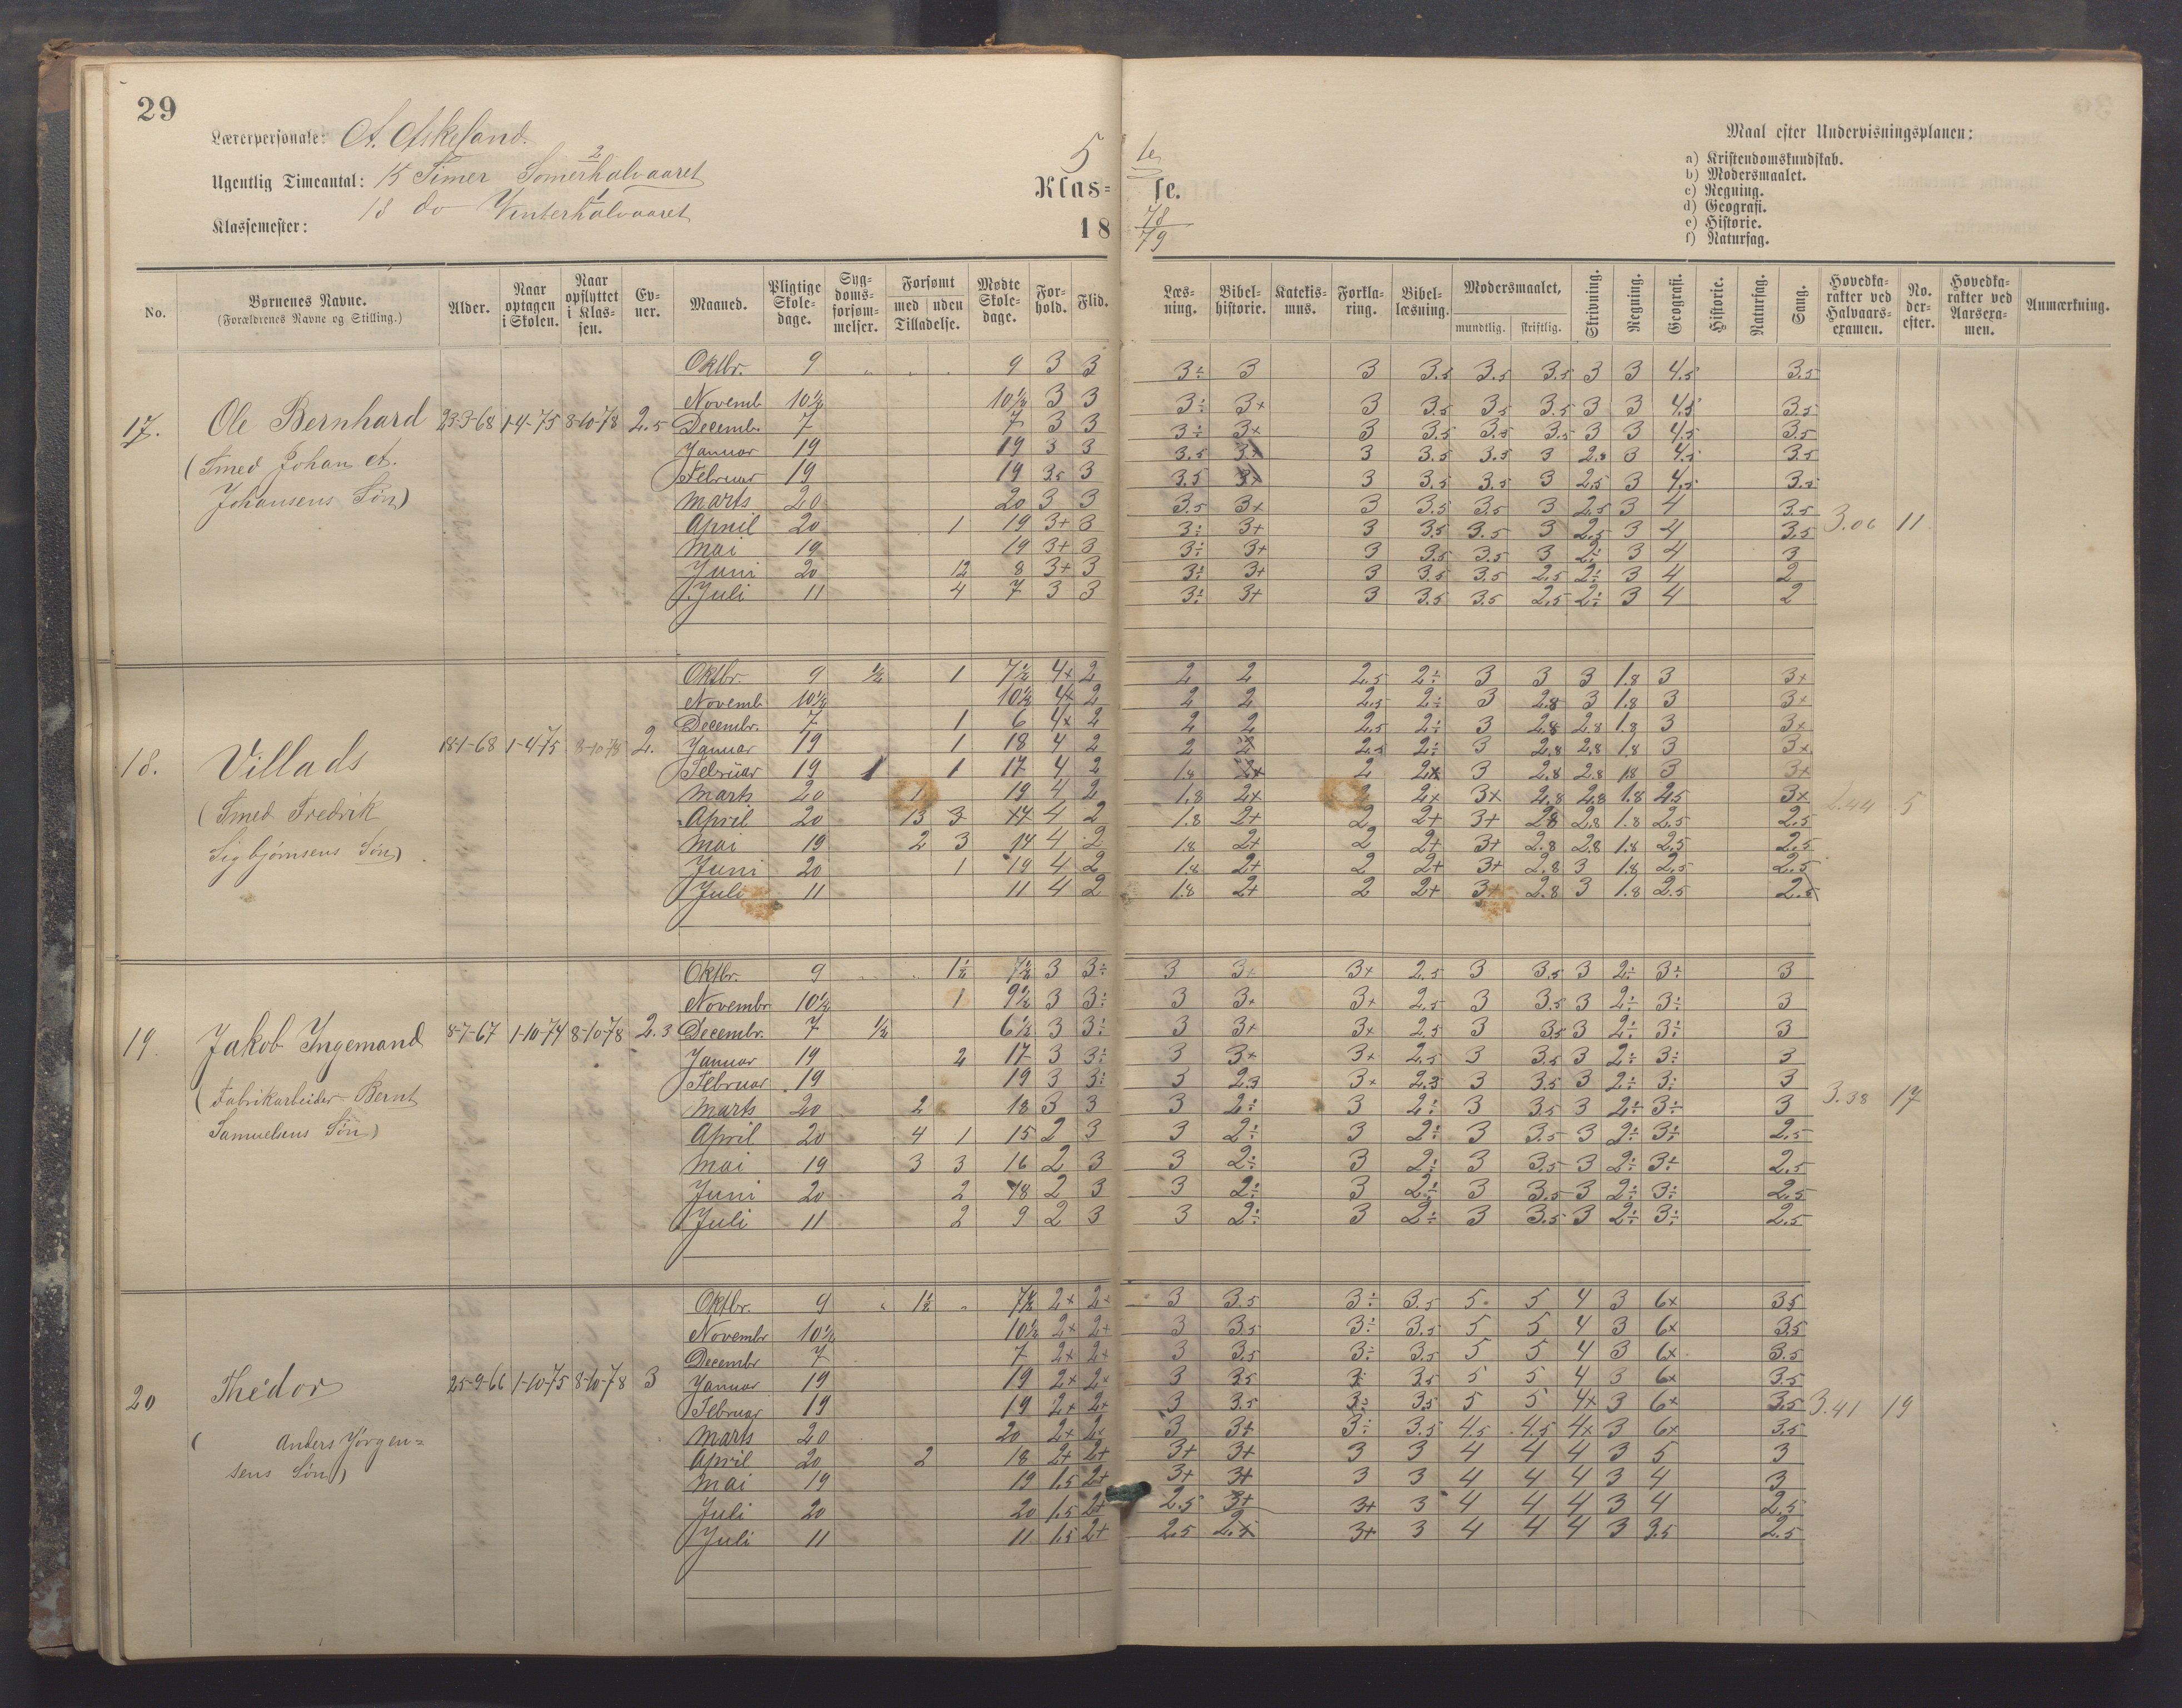 29
Lærerpersonale: A. Askeland.
Ugentlig Timeantal: 15 Timer Somerhalvaaret 2
18 do Vinterhalvaaret 1
Klassemester:
5te
Klas= se.
18 78/79
Maal efter Undervisningsplanen:
a) Kristendomskundskab.
b) Modersmaalet.
c) Regning.
d) Geografi.
e) Historie.
f) Naturfag.
No. | Børnenes Navne. (Forældrenes Navne og Stilling.) | Alder. | Naar optagen i Skolen. | Naar opflyttet i Klas-sen. | Ev-ner. | Maaned. | Pligtige Skole-dage. | Syg-doms-forsøm-melser. | Forsømt med | uden Tilladelse. | Mødte Skole-dage. | For-hold. | Flid. | Læs-ning. | Bibel-historie. | Katekis-mus. | Forkla-ring. | Bibel-læsning. | Modersmaalet, mundtlig. | skriftlig. | Skrivning. | Regning. | Geografi. | Historie. | Naturfag. | Sang. | Hovedka-rakter ved Halvaars-examen. | No. der-efter. | Hovedka-rakter ved Aarsexa-men. | Anmærkning.
17. Ole Bernhard 23-3-68 1-4-75 8-10-78 2.5
(Smed Johan A.
Johansens Søn)
Oktbr. 9 " " " 9 3 3 3÷ 3 3 3.5 3.5 3.5 3 3 4.5 3.5
Novemb 10½ 10½ 3 3 3÷ 3+ 3 3.5 3.5 3.5 3 3 4.5 3.5
Decemb. 7 7 3 3 3÷ 3+ 3 3.5 3.5 3.5 3 3 4.5 3.5
Januar 19 19 3 3 3.5 3+ 3 3.5 3.5 3 2.8 3 4.5 3.5
Februar 19 19 3.5 3 3.5 3+ 3 3.5 3.5 3 2.5 3 4.5 3.5
Marts 20 20 3 3 3.5 3+ 3 3.5 3.5 3 2.5 3 4 3.5
April 20 1 19 3+ 3 3÷ 3+ 3 3.5 3.5 3 2.5 3 4 3.5
Mai 19 19 3+ 3 3÷ 3+ 3 3.5 3.5 3 2÷ 3 4 3
Juni 20 12 8 3+ 3 3÷ 3+ 3 3.5 3.5 2.5 2÷ 3 4 2
Juli 11 4 7 3 3 3÷ 3+ 3 3.5 3.5 2.5 2÷ 3 4 2
3.06 11
18. Villads 18-1-68 1-4-75 8-10-78 2.
(Smed Fredrik
Sigbjørnsens Søn)
Oktbr. 9 ½ 1 7½ 4+ 2 2 2 2.5 2÷ 3 3 3 1.8 3 3+
Novemb 10½ 10½ 4+ 2 2 2 2.5 2÷ 3 2.8 3 1.8 3 3+
Decembr. 7 1 6 4+ 2 2 2 2.5 2÷ 3 2.8 2.8 1.8 3 3+
Januar 19 1 18 4 2 2 2 2.5 2÷ 3 2.8 2.8 1.8 3 3+
Februar 19 1 1 17 4 2 1.8 2+ 2 2+ 3 2.8 2.8 1.8 3 3+
Marts 20 1 19 4 2 1.8 2+ 2 2+ 3+ 2.8 2.8 1.8 2.5 3+
April 20 13 3 14 4 2 1.8 2+ 2 2+ 3+ 2.8 2.8 1.8 2.5 2.5
Mai 19 2 3 14 4 2 1.8 2+ 2 2+ 3+ 2.8 2.8 1.8 2.5 2.5
Juni 20 1 19 4 2 1.8 2+ 2 2+ 3+ 2.8 3 1.8 2.5 2.5
Juli 11 11 4 2 1.8 2+ 2 2+ 3+ 2.8 3 1.8 2.5 2.5
2.44 5
19. Jakob Ingemand 8-7-67 1-10-74 8-10-78 2.3
(Fabrikarbeider Bernt
Samuelsens Søn)
Oktbr. 9 1½ 7½ 3 3÷ 3 3+ 3+ 2.5 3 3.5 3 2÷ 3÷ 3
Novembr 10½ 1 9½ 3 3÷ 3 3+ 3+ 2.5 3 3.5 3 2÷ 3÷ 3
Decembr. 7 ½ 6½ 3 3÷ 3 3+ 3+ 2.5 3 3.5 3 2÷ 3÷ 3
Januar 19 2 17 3 3÷ 3 3+ 3+ 2.5 3 3.5 3 2÷ 3÷ 3
Februar 19 19 3 3÷ 3 2.3 3+ 2.3 3 3.5 3 2÷ 3÷ 3
Marts 20 2 18 3 3 3 2÷ 3 2÷ 3 3.5 3 2÷ 3÷ 3
April 20 4 1 15 2 3 3 2÷ 3 2÷ 3 3.5 3 2÷ 3÷ 2.5
Mai 19 3 3 16 2 3 3 2÷ 3 2÷ 3 3.5 3 2÷ 3÷ 2.5
Juni 20 2 18 2 3 3 2÷ 3 2÷ 3 3.5 3 2÷ 3÷ 2.5
Juli 11 2 9 2 3 3 2÷ 3 2÷ 3 3.5 3 2÷ 3÷ 2.5
3.38 17
20 Thedor 25-9-66 1-10-75 8-10-78 3
( Anders Jørgen=
sens Søn)
Oktbr. 9 " 1½ " 7½ 2+ 2+ 3 3.5 3÷ 3.5 5 5 4 3 6+ 3.5
Novembr 10½ 10½ 2+ 2+ 3 3.5 3÷ 3.5 5 5 4 3 6+ 3.5
Decembr 7 7 2+ 2+ 3 3.5 3÷ 3.5 5 5 4 3 6+ 3.5
Januar 19 19 2+ 2+ 3 3.5 3÷ 3.5 5 5 4 3 6+ 3.5
Februar 19 19 2+ 2+ 3 3.5 3÷ 3.5 5 5 4+ 3 6+ 3.5
Marts 20 20 2+ 2+ 3 3+ 3÷ 3.5 4.5 4.5 4+ 3 6+ 3.5
April 20 2 18 2+ 2+ 3+ 3+ 3 3 4 4 4 3 5 3
Mai 19 19 1.5 2+ 3+ 3+ 3 3 4 4 4 3 4 3
Juli 20 20 1.5 2+ 2.5 3+ 3+ 3 4 4 4 3 4 2.5
Juli 11 11 1.5 2+ 2.5 2.5 3+ 3 4 4 4 3 3.5 2.5
3.41 19